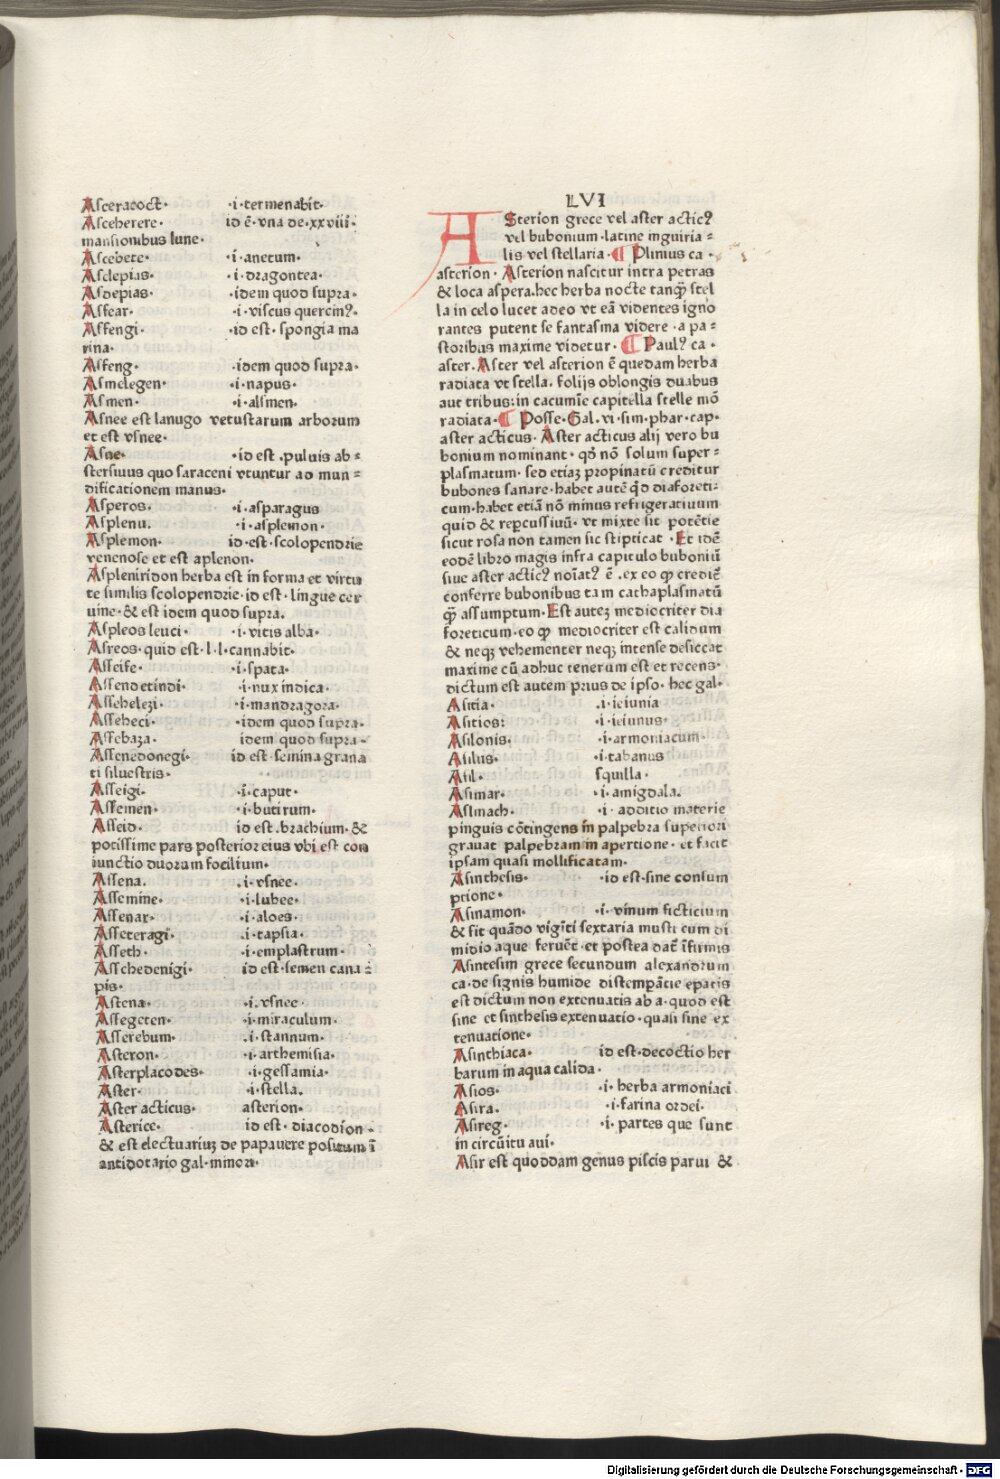 Asceracoct· ·i·termenabit·
Asceherere· id ē·vna de·xxviii·
mansionibus lune·
Ascebete· ·i·anetum·
Asclepias· ·i·dragontea·
Asdepias· ·idem quod supra·
Asfear· ·i·viscus quercinꝰ·
Asfengi· ·id est·spongia ma
rina·
Asfeng· ·idem quod supra·
Asmelegen· ·i·napus·
Asmen· ·i·alsmen·
Asnee est lanugo vetustarum arborum
et est vsnee·
Asne· ·id est·puluis ab⸗
stersiuus quo saraceni vtuntur ad mun⸗
dificationem manus·
Asperos· ·i·asparagus
Asplenu. ·i·asplemon·
Asplemon· id·est·scolopendrie
venenose et est aplenon·
Aspleniridon herba est in forma et virtu
te similis scolopendrie·id est·lingue cer
uine·& est idem quod supra.
Aspleos leuci· ·i·vitis alba·
Asreos·quid est·l·l·cannabit·
Asseife· ·i·spata·
Assendetindi· ·i·nux indica·
Assehelezi· ·i·mandragora·
Asseheci· ·idem quod supra·
Assebaza· idem quod supra·
Assenedonegi· id est·semina grana
ti siluestris·
Asseigi· ·i·caput·
Assemen· ·i·butirum·
Asseid· id est·brachium·&
potissime pars posterior eius vbi est con
iunctio duorum focilium·
Assena. ·i·vsnee·
Assemine· ·i·lubee·
Assenar· ·i·aloes·
Asseteragi· ·i·tapsia·
Asseth· ·i·emplastrum·
Asschedenigi· id est·semen cana⸗
pis·
Astena· ·i·vsnee·
Assegeten· ·i·miraculum·
Asserebum· ·i·stannum·
Asteron· ·i·arthemisia·
Asterplacodes· ·i·gessamia·
Aster· ·i·stella.
Aster acticus· asterion·
Asterice· id est·diacodion·
& est electuariuz de papauere positum ī
antidotario gal·minori·
LVI
ASterion grece vel aster acticꝰ
vel bubonium·latine inguiria⸗
lis vel stellaria·¶ Plinius ca·
asterion·Asterion nascitur intra petras
& loca aspera.hec herba nocte tanqȝ stel
la in celo lucet adeo vt eā videntes igno
rantes putent se fantasma videre·a pa⸗
storibus maxime videtur·¶ Paulꝰ ca·
aster.Aster vel asterion ē quedam herba
radiata vt stella.folijs oblongis duabus
aut tribus:in cacumīe capitella stelle mō
radiata·¶ Posse·Gal·vi·sim·phar·cap·
aster acticus·Aster acticus alij vero bu
bonium nominant·qđ nō solum super⸗
plasmatum·sed etiaz propinatū creditur
bubones sanare·habet autē qd diaforeti⸗
cum·habet etiā nō minus refrigeratiuum
quid & repercussiuū·vt mixte sit potētie
sicut rosa non tamen sic stipticat·Et idē
eodē libro magis infra capitulo buboniū
siue aster acticꝰ noīatꝰ ē.ex eo ꝙ crediť
conferre bubonibus tam cathaplasmatū
qȝ assumptum·Est autez mediocriter dia
foreticum·eo ꝙ mediocriter est calidum
& neqȝ vehementer neqȝ intense desiccat
maxime cū adhuc tenerum est et recens·
dictum est autem prius de ipso·hec gal·
Asitia· .i·ieiunia
Asitios: ·i·ieiunus·
Asilonis· ·i·armoniacum·
Asilus· ·i·tabanus
Asil· squilla·
Asimar· ·i·amigdala.
Aslmach· ·i·additio materie
pinguis cōtingens in palpebra superiori
grauat palpebram in apertione·et facit
ipsam quasi mollificatam·
Asinthesis· ·id est·sine consum
ptione·
Asinamon· ·i·vinum ficticium
& fit quādo vigīti sextaria musti cum di
midio aque feruēt·et postea dať īfirmis
Asintesim grece secundum alexandrum
ca·de signis humide distempātie epatis
est dictum non extenuatis ab a·quod est
sine et sinthesis extenuatio·quasi sine ex
tenuatione·
Asinthiaca· id est·decoctio her
barum in aqua calida·
Asios· ·i·herba armoniaci
Asira· ·i·farina ordei·
Asireg· ·i·partes que sunt
in circūitu aui·
Asir est quoddam genus piscis parui &
Digitalisierung gefördert durch die Deutsche Forschungsgemeinschaft - DFG